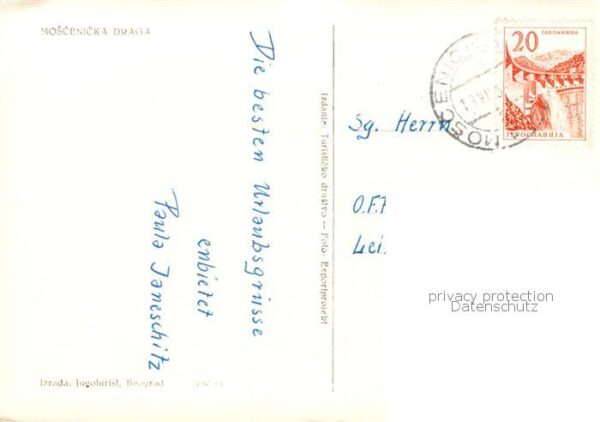 MOŠĆENIČKA DRAGA
Die besten Urlaubsgrüsse
enbietet
Paula Janeschitz
Izrada: Jugoturist, Beograd
Izdanje: Turističko društvo — Foto: Exportprojekt
20
JABLANICA
ЈУГОСЛАВИЈА
Sg. Herrn
O.F.
Lei.
privacy protection
Datenschutz